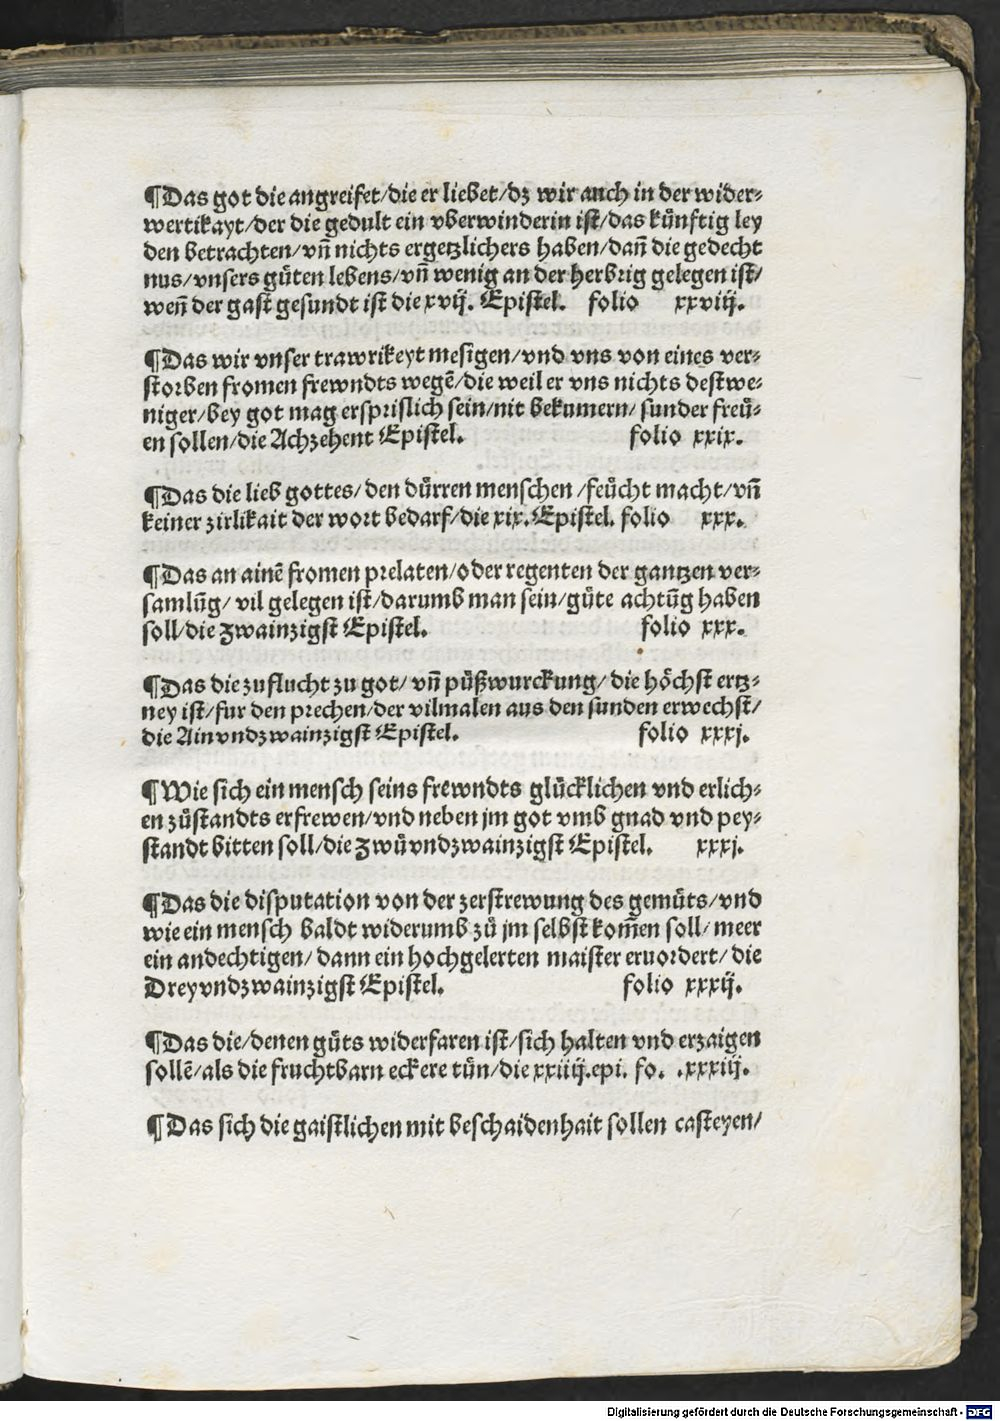 ¶Das got die angreifet/die er liebet/dz wir auch in der wider⸗
wertikayt/der die gedult ein vberwinderin ist/das künftig ley
den betrachten/vn̄ nichts ergetzlichers haben/dan̄ die gedecht
nus/vnsers gůten lebens/vn̄ wenig an der herbrig gelegen ist/
wen̄ der gast gesundt ist die xvij. Epistel. folio xxviij.
¶Das wir vnser trawrikeyt mesigen/vnd vns von eines ver⸗
storben fromen frewndts wegē/die weil er vns nichts destwe⸗
niger/bey got mag ersprislich sein/nit bekumern/ sunder freü⸗
en sollen/die Achzehent Epistel. folio xxix.
¶Das die lieb gottes/den dürren menschen /feücht macht/vn̄
keiner zirlikait der wort bedarf/die xix. Epistel. folio xxx.
¶Das an ainē fromen prelaten/oder regenten der gantzen ver⸗
samlūg/ vil gelegen ist/darumb man sein/gůte achtūg haben
soll/die zwainzigst Epistel. folio xxx.
¶Das die zuflucht zu got/ vn̄ půßwurckung/die höchst ertz⸗
ney ist/fur den prechen/der vilmalen aus den sunden erwechst/
die Ainvndzwainzigst Epistel. folio xxxj.
¶Wie sich ein mensch seins frewndts glücklichen vnd erlich⸗
en zůstandts erfrewen/vnd neben jm got vmb gnad vnd pey⸗
standt bitten soll/die zwůvndzwainzigst Epistel. xxxj.
¶Das die disputation von der zerstrewung des gemůts/vnd
wie ein mensch baldt widerumb zů jm selbst kom̄en soll/ meer
ein andechtigen/dann ein hochgelerten maister eruordert/die
Dreyvndzwainzigst Epistel. folio xxxij.
¶Das die/denen gůts widerfaren ist/sich halten vnd erzaigen
sollē/als die fruchtbarn eckere tůn/die xxiiij.epi. fo. .xxxiij.
¶Das sich die gaistlichen mit beschaidenhait sollen casteyen/
Digitalisierung gefördert durch die Deutsche Forschungsgemeinschaft - DFG